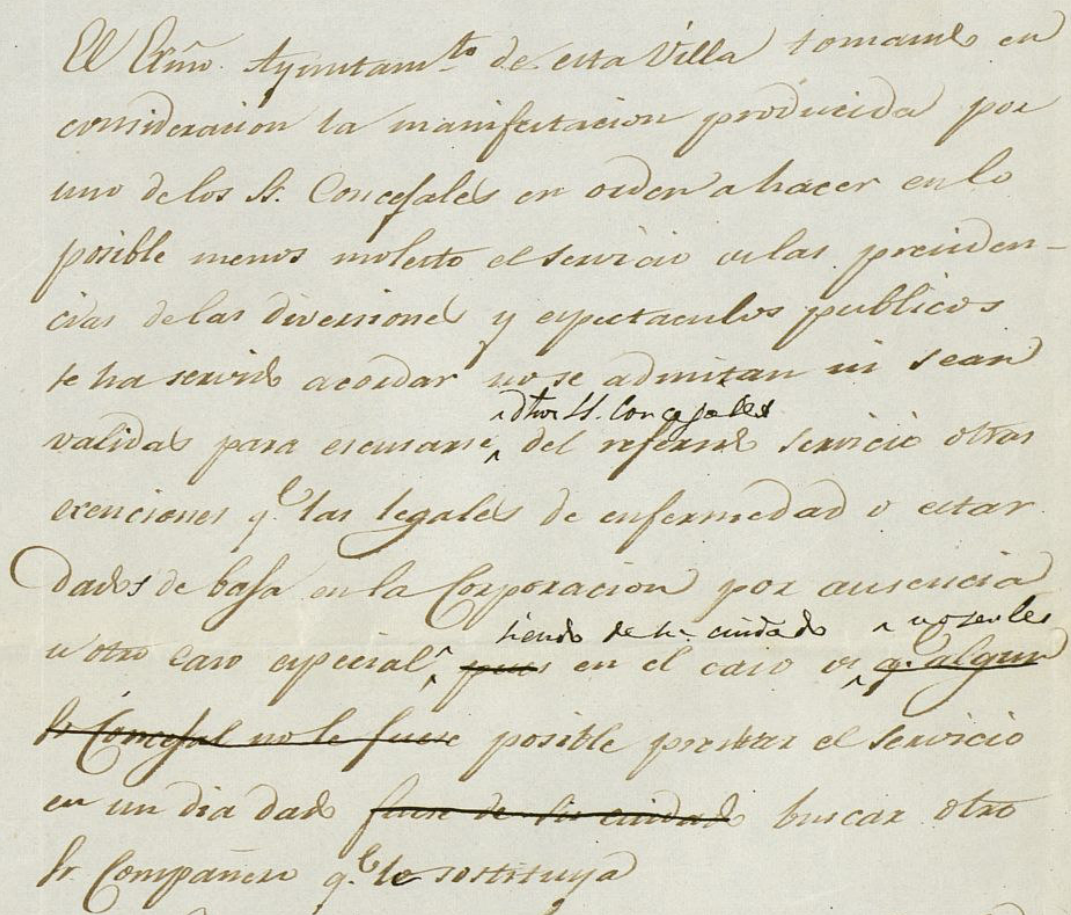 El Exmo. Ayuntam.to de esta Villa tomando en
consideracion la manifestacion producida por
uno delos Sr. Concejales en orden a hacer en lo
posible menos molesto el servicio de las presiden-
cias delas diversiones y espectaculos publicos
se ha servido acordar no se admitan ni sean
dhos SS. Concejales
validas para escusarse del referido servicio otras
exenciones q.e las legales de enfermedad o estar
dados de baja en la Corporacion por ausencia
siendo de su cuidado no serles
u otro caso especial, pues en el caso de q.e algun
Sr. Concejal no le fuere posible prestar el servicio
en un dia dado fuere de su cuidado buscar otro
Sr. Compañero q.e le sostituya